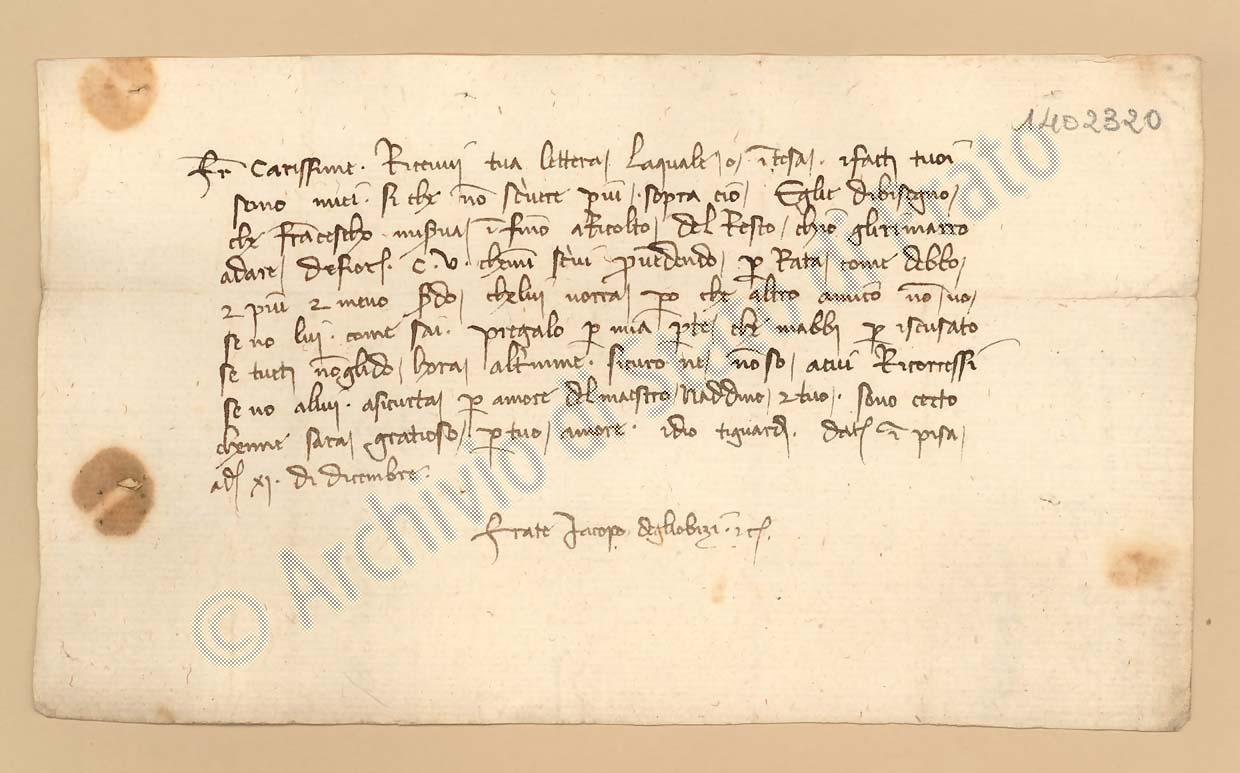 1402320
Fr Carissime. Ricevii tua lettera, laquale o, itesa. i fatti tuoi
sono miei. si che nō scivere piu. sopra ciō, Eglie dibisogno,
che Francescho miserva, ī fino aRicolto, del Resto, chio glirimarro
adare, de fior. C. V. chemi servi provedendo, per Rata, come debbo,
⁊ piu ⁊ meno secondo, chelui vorra, pero che altro amico nō vo,
se no lui. come sai. pregalo per mia parte, che mabbi per iscusato
se tucti nōglido, hora, altrimme. sicuro ne, nōso, acui Ricorressi
se no allui. asicurta, per amore del maestro, Naddino, ⁊ tuo. sono certo
chemme sara, gratioso, per tuo, amore. idio tiguardi. dat ī pisa,
adi xi. di dicembre.
Frate Jacopo degliobizi. ⁊c.
© Archivio di Stato di Prato